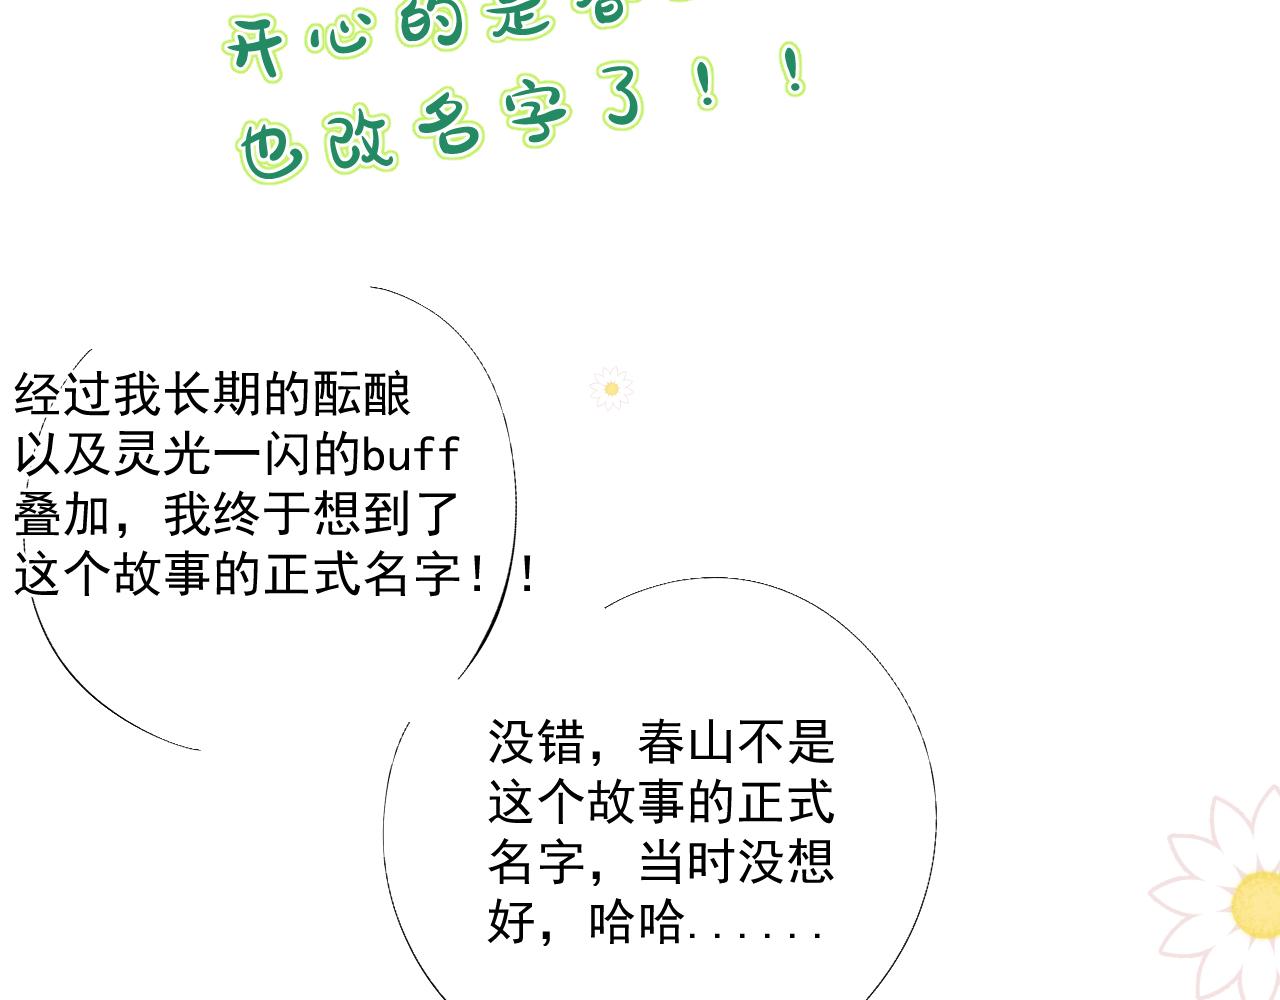 开心的是春
也改名字了！！
经过我长期的酝酿
以及灵光一闪的buff
叠加，我终于想到了
这个故事的正式名字！！
没错，春山不是
这个故事的正式
名字，当时没想
好，哈哈......